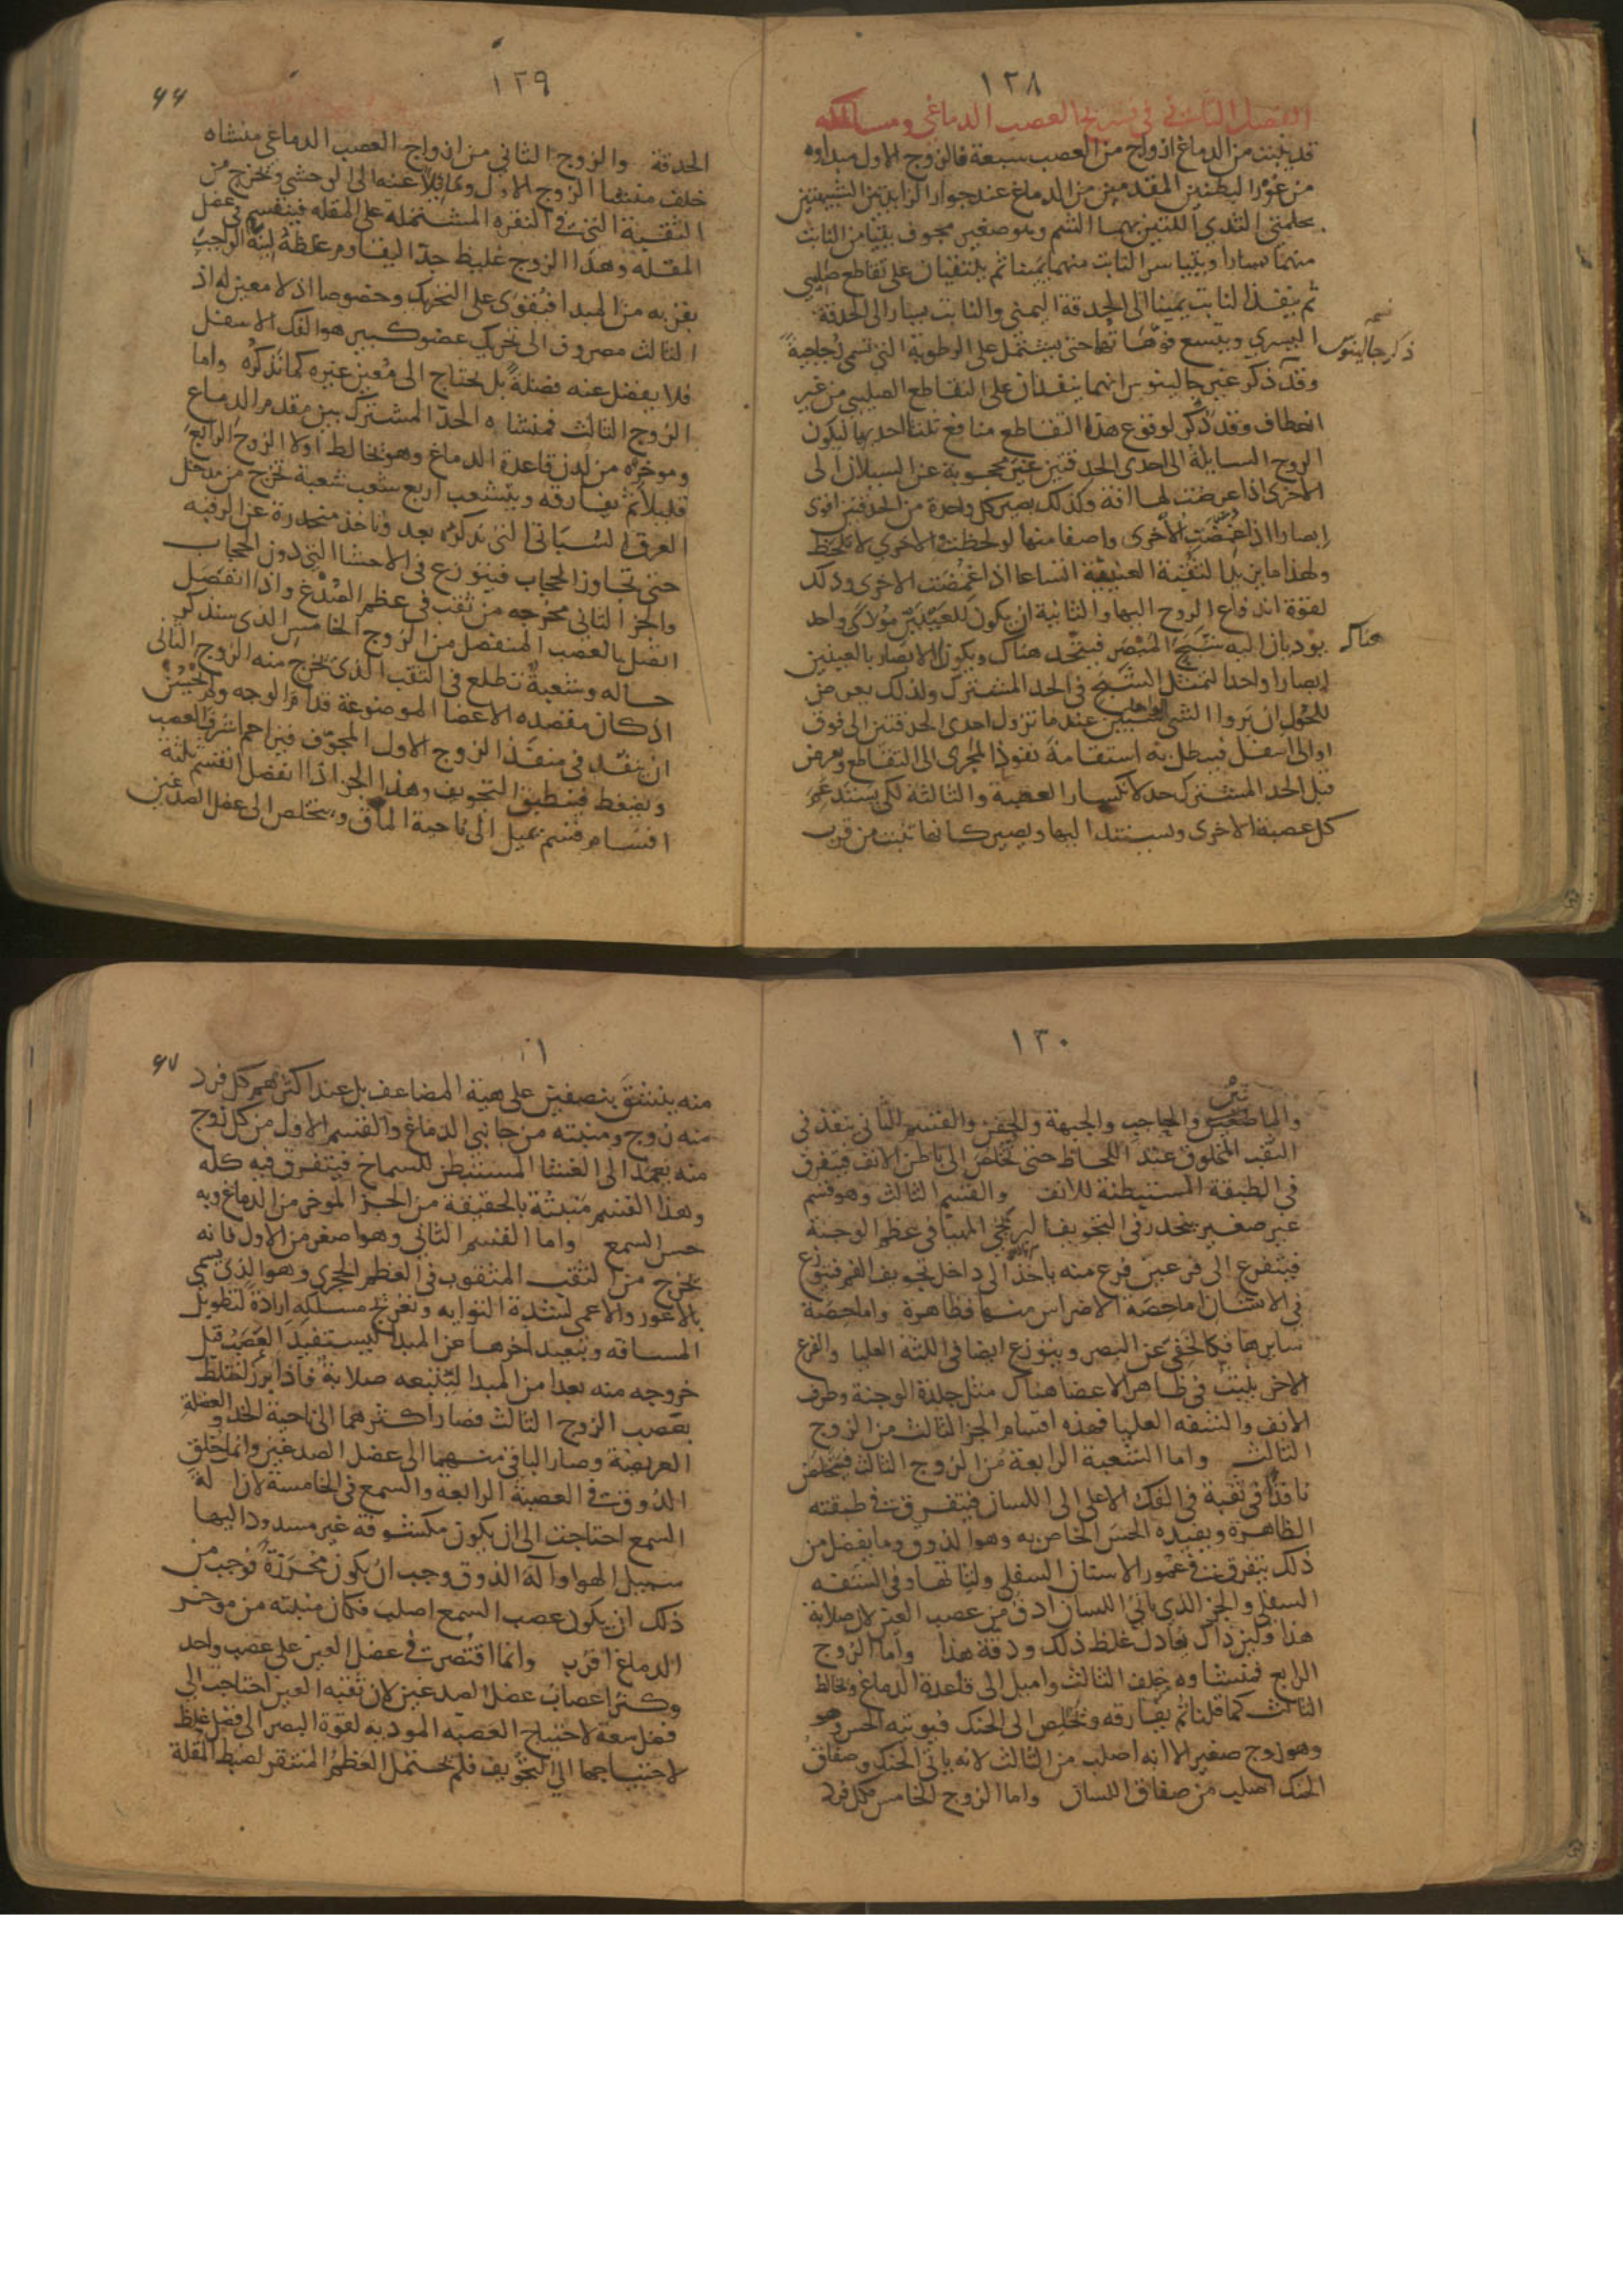 ١٢٨
الفصل الثاني في تشريح العصب الدماغي ومسالكه
قد ينبت من الدماغ ازواج من العصب سبعة فالزوج الاول مبداوه
من غور البطنين المقدمين من الدماغ عند جوار الزايدتين الشبيهتين
بحلمتي الثدي اللتين بهما الشم وهو صغير مجوف يتيامن النابت
منهما يسارا ويتياسر النابت منهما يمينا ثم يلتقيان على تقاطع صليبي
ثم ينفذ النابت يمينا الى الحدقة اليمنى والنابت يسارا الى الحدقة
اليسرى ويتسع فوهاتها حتى يشتمل على الرطوبة التي تسمى زجاجية
ذكر جالينوس
وقد ذكر غير جالينوس انهما ينفذان على التقاطع الصليبي من غير
انعطاف وقد ذكر لوقوع هذا التقاطع منافع ثلثا احديها ليكون
الروح السايلة الى احدى الحدقتين غير محجوبة عن السيلان الى
الاخرى اذا عرضت لها افة وكذلك يصير كل واحدة من الحدقتين اقوى
ابصارا اذا غمضت الاخرى واصفا منها لو لحظت والاخرى لا تلحظ
ولهذا ما يزيد الثقبة العنبية اتساعا اذا غمضت الاخرى وذلك
لقوة اندفاع الروح اليها والثانية ان يكون للعينين مؤدى واحد
يوديان اليه شبح المبصر فيتحد هناك ويكون الابصار بالعينين
هناك
ابصارا واحدا لتمثل الشبح في الحد المشترك ولذلك يعرض
للحول ان يروا الشي الواحد شيئين عندما تزول احدى الحدقتين الى فوق
او الى اسفل فيبطل به استقامة نفوذ المجرى الى التقاطع ويعرض
قبل الحد المشترك حد لانكسار العصبة والثالثة لكي يستدعم
كل عصبة الاخرى ويستند اليها ويصير كانها تنبت من قرب
١٢٩
٦٦
الحدقة والزوج الثاني من ازواج العصب الدماغي منشاه
خلف منشا الزوج الاول ومايلا عنه الى الوحشي ويخرج من
الثقبة التي في النقرة المشتملة على المقلة فينقسم في عضل
المقلة وهذا الزوج غليظ جدا ليقاوم غلظه لينه الواجب
بقربه من المبدا فيقوى على التحريك وخصوصا اذ لا معين له اذ
الثالث مصروف الى تحريك عضو كبير هو الفك الاسفل
فلا يفضل عنه فضلة بل يحتاج الى معين غيره كما نذكره واما
الزوج الثالث فمنشاه الحد المشترك بين مقدم الدماغ
وموخره من لدن قاعدة الدماغ وهو يخالط اولا الزوج الرابع
قليلا ثم يفارقه ويتشعب اربع شعب شعبة تخرج من مدخل
العرق السباتي الذي نذكره بعد وتاخذ منحدرة عن الرقبة
حتى تجاوز الحجاب فيتوزع في الاحشا التي دون الحجاب
والجز الثاني مخرجه من ثقب في عظم الصدغ واذا انفصل
اتصل بالعصب المنفصل من الزوج الخامس الذي سنذكر
حاله وشعبة تطلع في الثقب الذي يخرج منه الزوج الثاني
اذ كان مقصده الاعضا الموضوعة قدام الوجه ولم يحسن
ان ينفذ في منفذ الزوج الاول المجوف فيزاحم اشرف العصب
ويضغط فينطبق التجويف وهذا الجز اذا انفصل انقسم ثلثة
اقسام قسم يميل الى ناحية الماق ويتخلص الى عضل الصدغين
١٣٠
والماضغين والحاجب والجبهة والجفن والقسم الثاني ينفذ في
الثقب المخلوق عند اللحاظ حتى تخلص الى باطن الانف فيتفرق
في الطبقة المستبطنة للانف والقسم الثالث وهو قسم
غير صغير ينحدر في التجويف البربخي المهيا في عظم الوجنة
فيتفرع الى فرعين فرع منه ياخذ الى داخل تجويف الفم فيتوزع
في الاسنان اما حصة الاضراس منها فظاهرة واما حصة
سايرها فكالخفي عن البصر ويتوزع ايضا في اللثة العليا والفرع
الاخر يلبث في ظاهر الاعضا هناك مثل جلدة الوجنة وطرف
الانف والشفه العليا فهذه اقسام الجز الثالث من الزوج
الثالث واما الشعبة الرابعة من الزوج الثالث فيتخلص
نافذا في ثقبة في الفك الاعلى الى اللسان فيتفرق في طبقته
الظاهرة ويفيده الحس الخاص به وهو الذوق وما يفضل من
ذلك يتفرق في عمور الاسنان السفلى ولثاتها وفي الشفه
السفلي والجز الذي ياتي اللسان ادق من عصب العين لان صلابة
هذا ولين ذاك يعادل غلظ ذلك ودقة هذا واما الزوج
الرابع فمنشاوه خلف الثالث واميل الى قاعدة الدماغ ويخالط
الثالث كما قلنا ثم يفارقه ويخلص الى الحنك فيوتيه الحس
وهو زوج صغير الا انه اصلب من الثالث لانه ياتي الحنك وصفاق
الحنك اصلب من صفاق اللسان واما الزوج الخامس فكل فرد
٦٧
منه ينشق بنصفين على هية المضاعف بل عند اكثرهم كل فرد
منه زوج ومنبته من جانبي الدماغ والقسم الاول من كل زوج
منه يعمد الى الغشا المستبطن للسماخ فيتفرق فيه كله
وهذا القسم منبته بالحقيقة من الجز الموخر من الدماغ وبه
حس السمع واما القسم الثاني وهو اصغر من الاول فانه
يخرج من الثقب المثقوب في العظم الحجري وهو الذي يسمى
بالاعور والاعمى لشدة التوايه وتعرج مسلكه ارادة لتطويل
المسافه وتبعيد اخرها عن المبدا ليستفيد العصب قبل
خروجه منه بعدا من المبدا ليتبعه صلابة فاذا برز اختلط
بعصب الزوج الثالث فصار اكثرهما الى ناحية الخد والعضلة
العريضة وصار الباقي منهما الى عضل الصدغين وانما خلق
الذوق في العصبة الرابعة والسمع في الخامسة لان الة
السمع احتاجت الى ان يكون مكشوفة غير مسدود اليها
سبيل الهوا والة الذوق وجب ان يكون محرزة فوجب من
ذلك ان يكون عصب السمع اصلب فكان منبته من موخر
الدماغ اقرب وانما اقتصرت في عضل العين على عصب واحد
وكثر اعصاب عضل الصدغين لان ثقبة العين احتاجت الى
فضل سعة لاحتياج العصبه المودية لقوة البصر الى فضل غلظ
لاحتياجها الى التجويف فلم يحتمل العظم المستقر لضبط المقلة